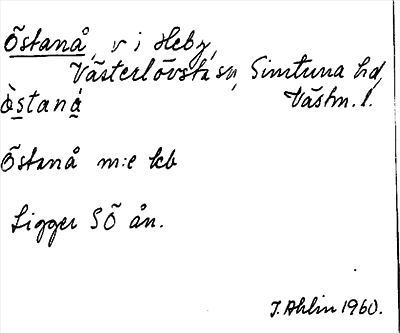 Östanå, v i Heby,
Västerlövsta sn, Simtuna hd,
òstaná Västm. l.
Östanå m:e kb
Ligger SÖ ån.
J. Ahlin 1960.